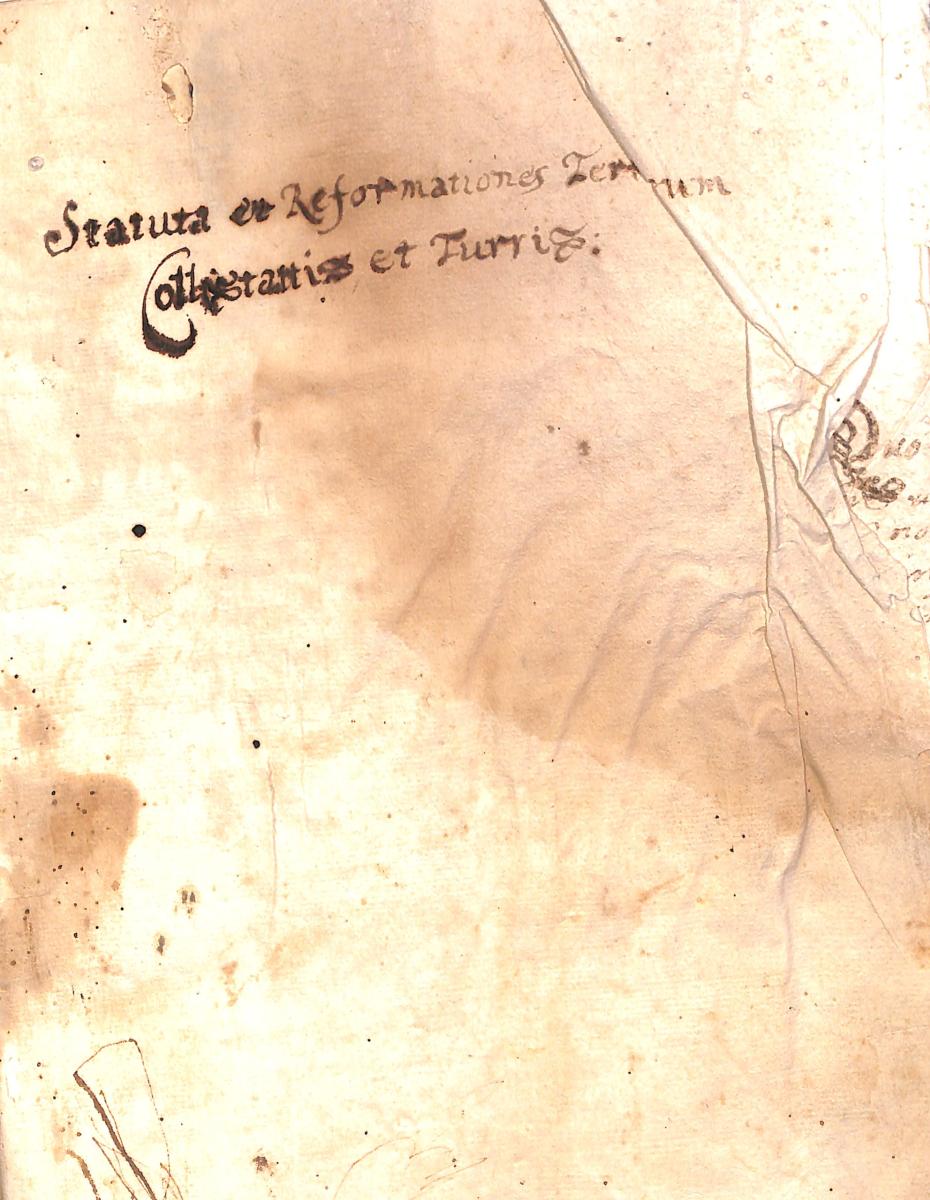 Statuta et Reformationes Terrarum
Collistattis et Turris:
Quo